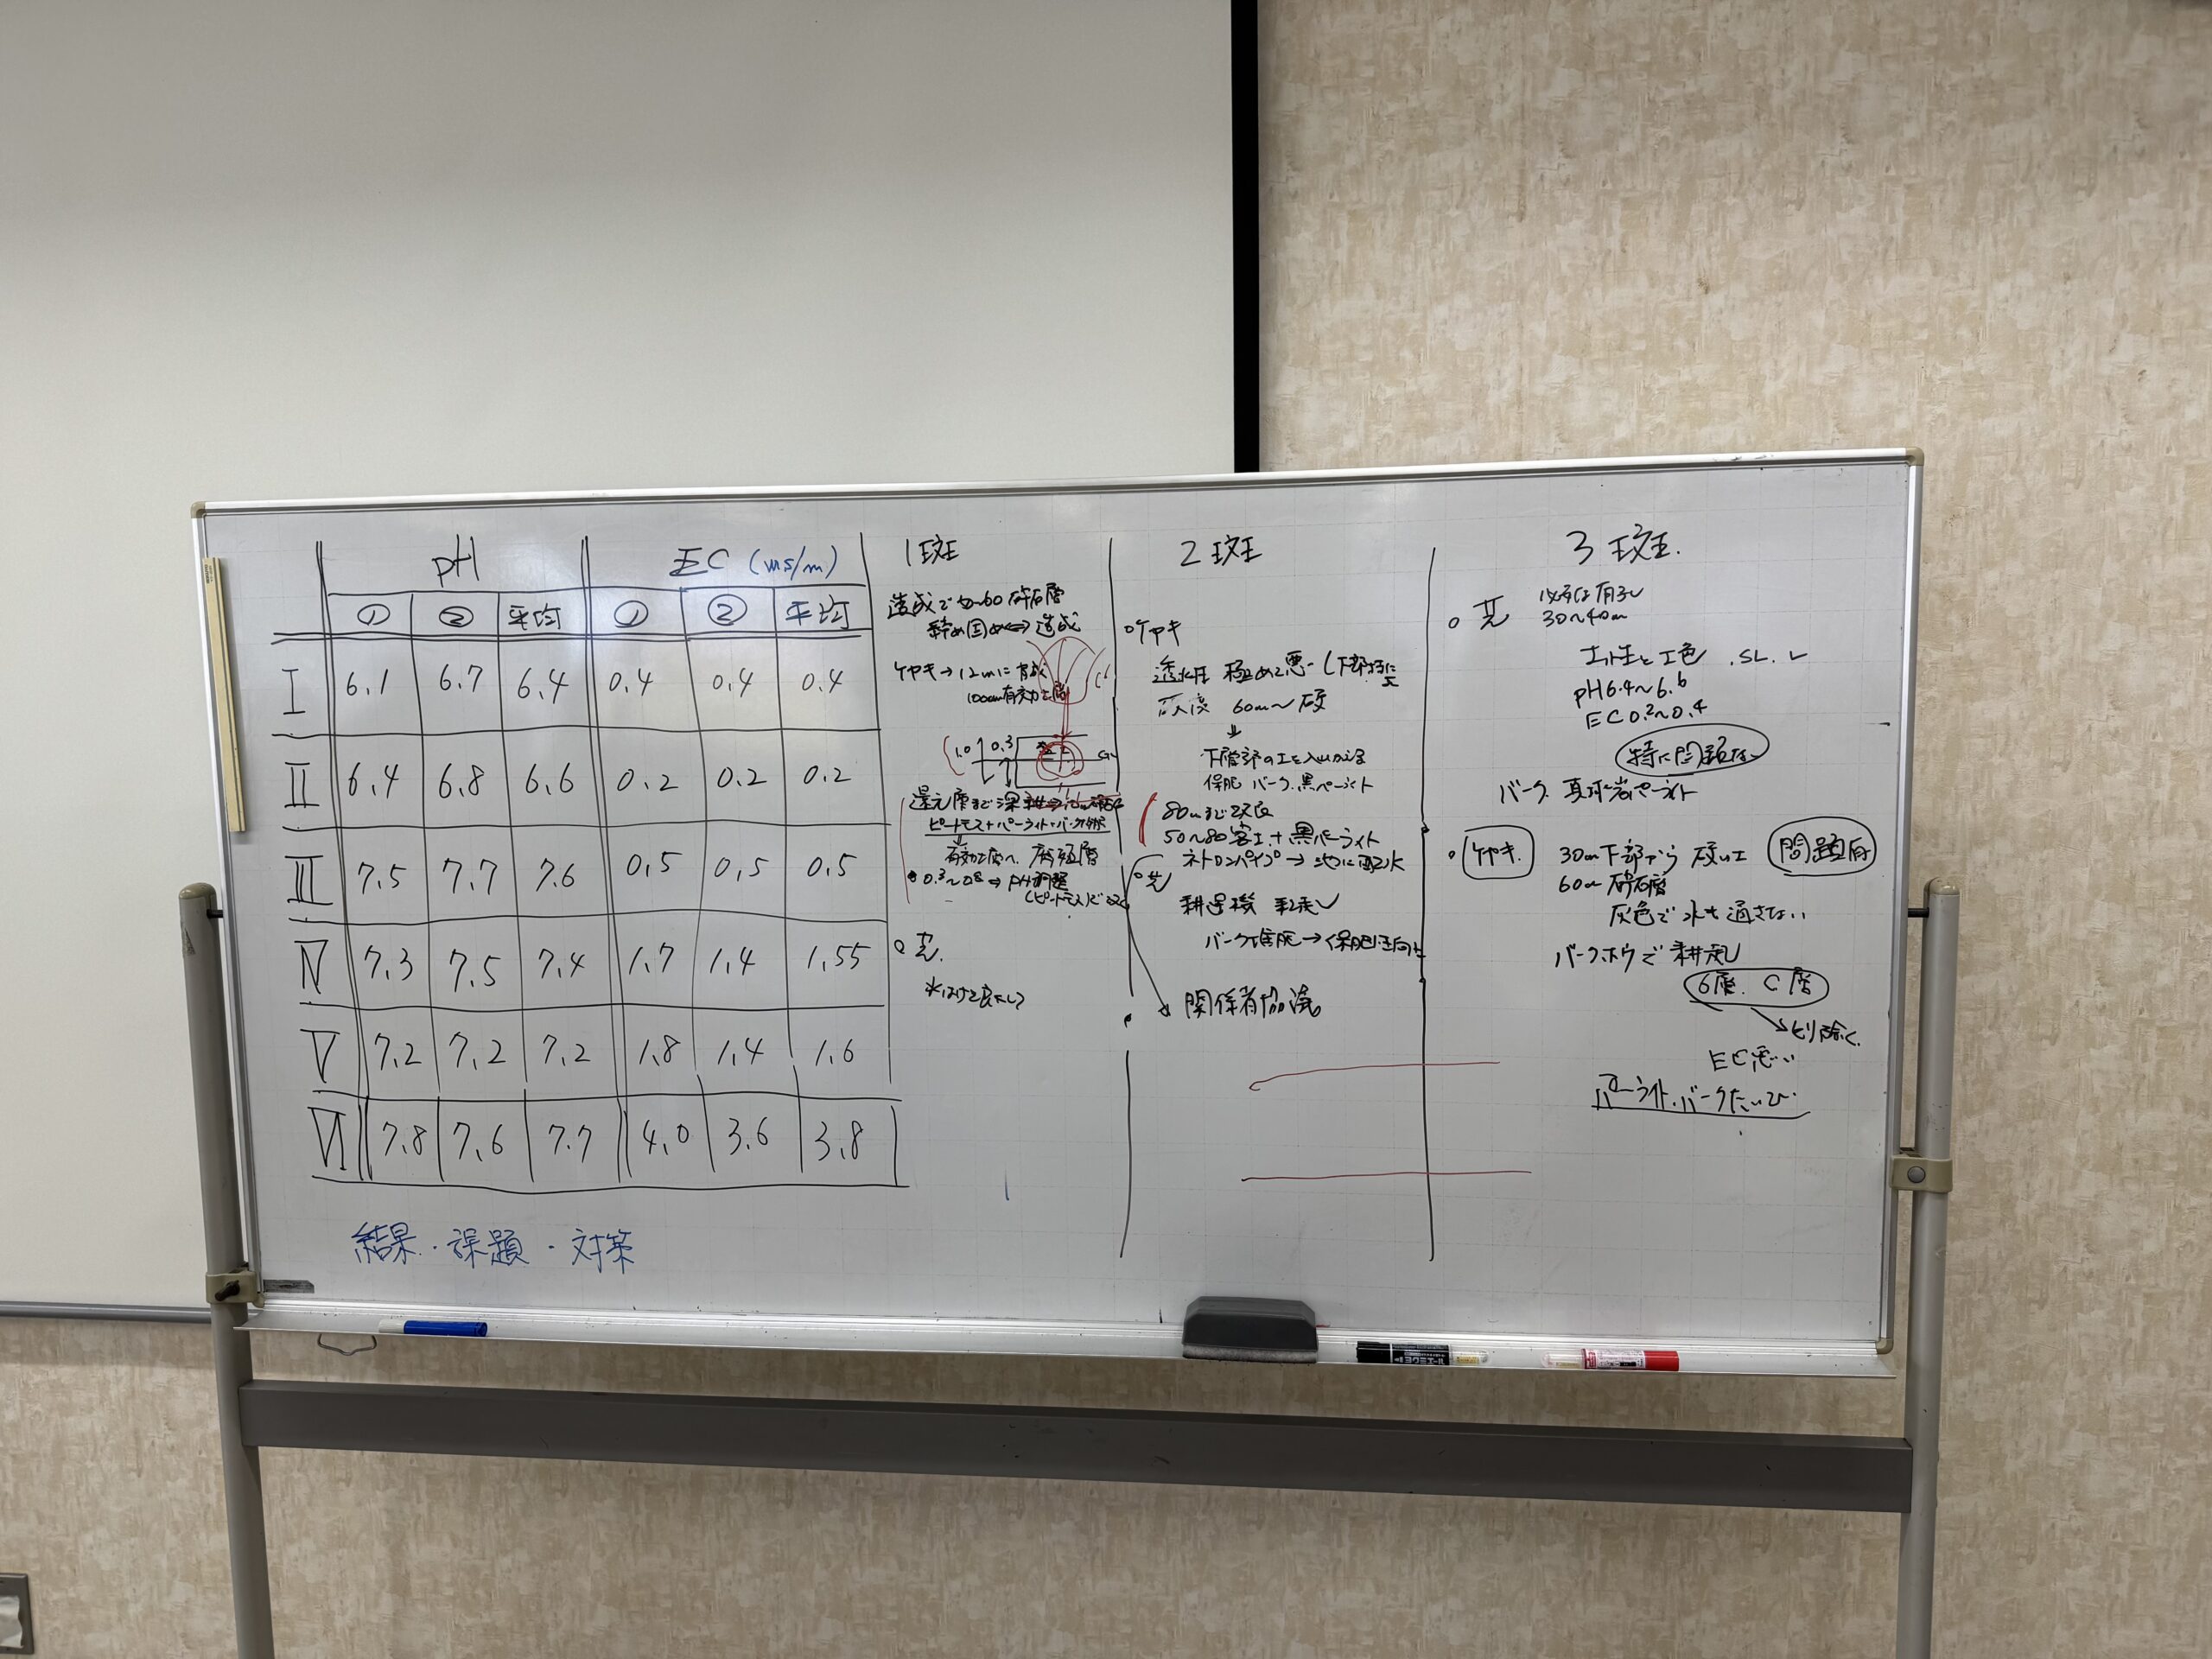 pH EC (ms/m)
① ② 平均 ① ② 平均
I 6.1 6.7 6.4 0.4 0.4 0.4
II 6.4 6.8 6.6 0.2 0.2 0.2
III 7.5 7.7 7.6 0.5 0.5 0.5
IV 7.3 7.5 7.4 1.7 1.4 1.55
V 7.2 7.2 7.2 1.8 1.4 1.6
VI 7.8 7.6 7.7 4.0 3.6 3.8
結果・課題・対策
1班
造成で 60 砕石層
締め固め⇔造成
ケヤキ→12mに育成
100cm有効土層
1.0 0.3
還元層まで深耕
ピートモス+パーライト+バーク堆肥
0.3~0.8→pH調整
芝
2班
ケヤキ
透水性 極めて悪い
硬度 60cm~硬
↓
下層部の土を入れかえる
保肥 バーク、黒パーライト
80cmまで改良
50~80客土+黒パーライト
ネトロンパイプ→池に配水
芝
耕运機 耕起
バーク堆肥→保肥性向上
関係者協議
3班
芝
30~40cm
土性と土色 SL
pH6.4~6.6
EC0.2~0.4
特に問題ない
バーク、真珠岩パーライト
ケヤキ 30cm下部から硬い土 問題有
60cm 砕石層
灰色で水も通さない
バックホウで耕起
6層、C層
とり除く
EC悪い
パーライト、バークたいひ